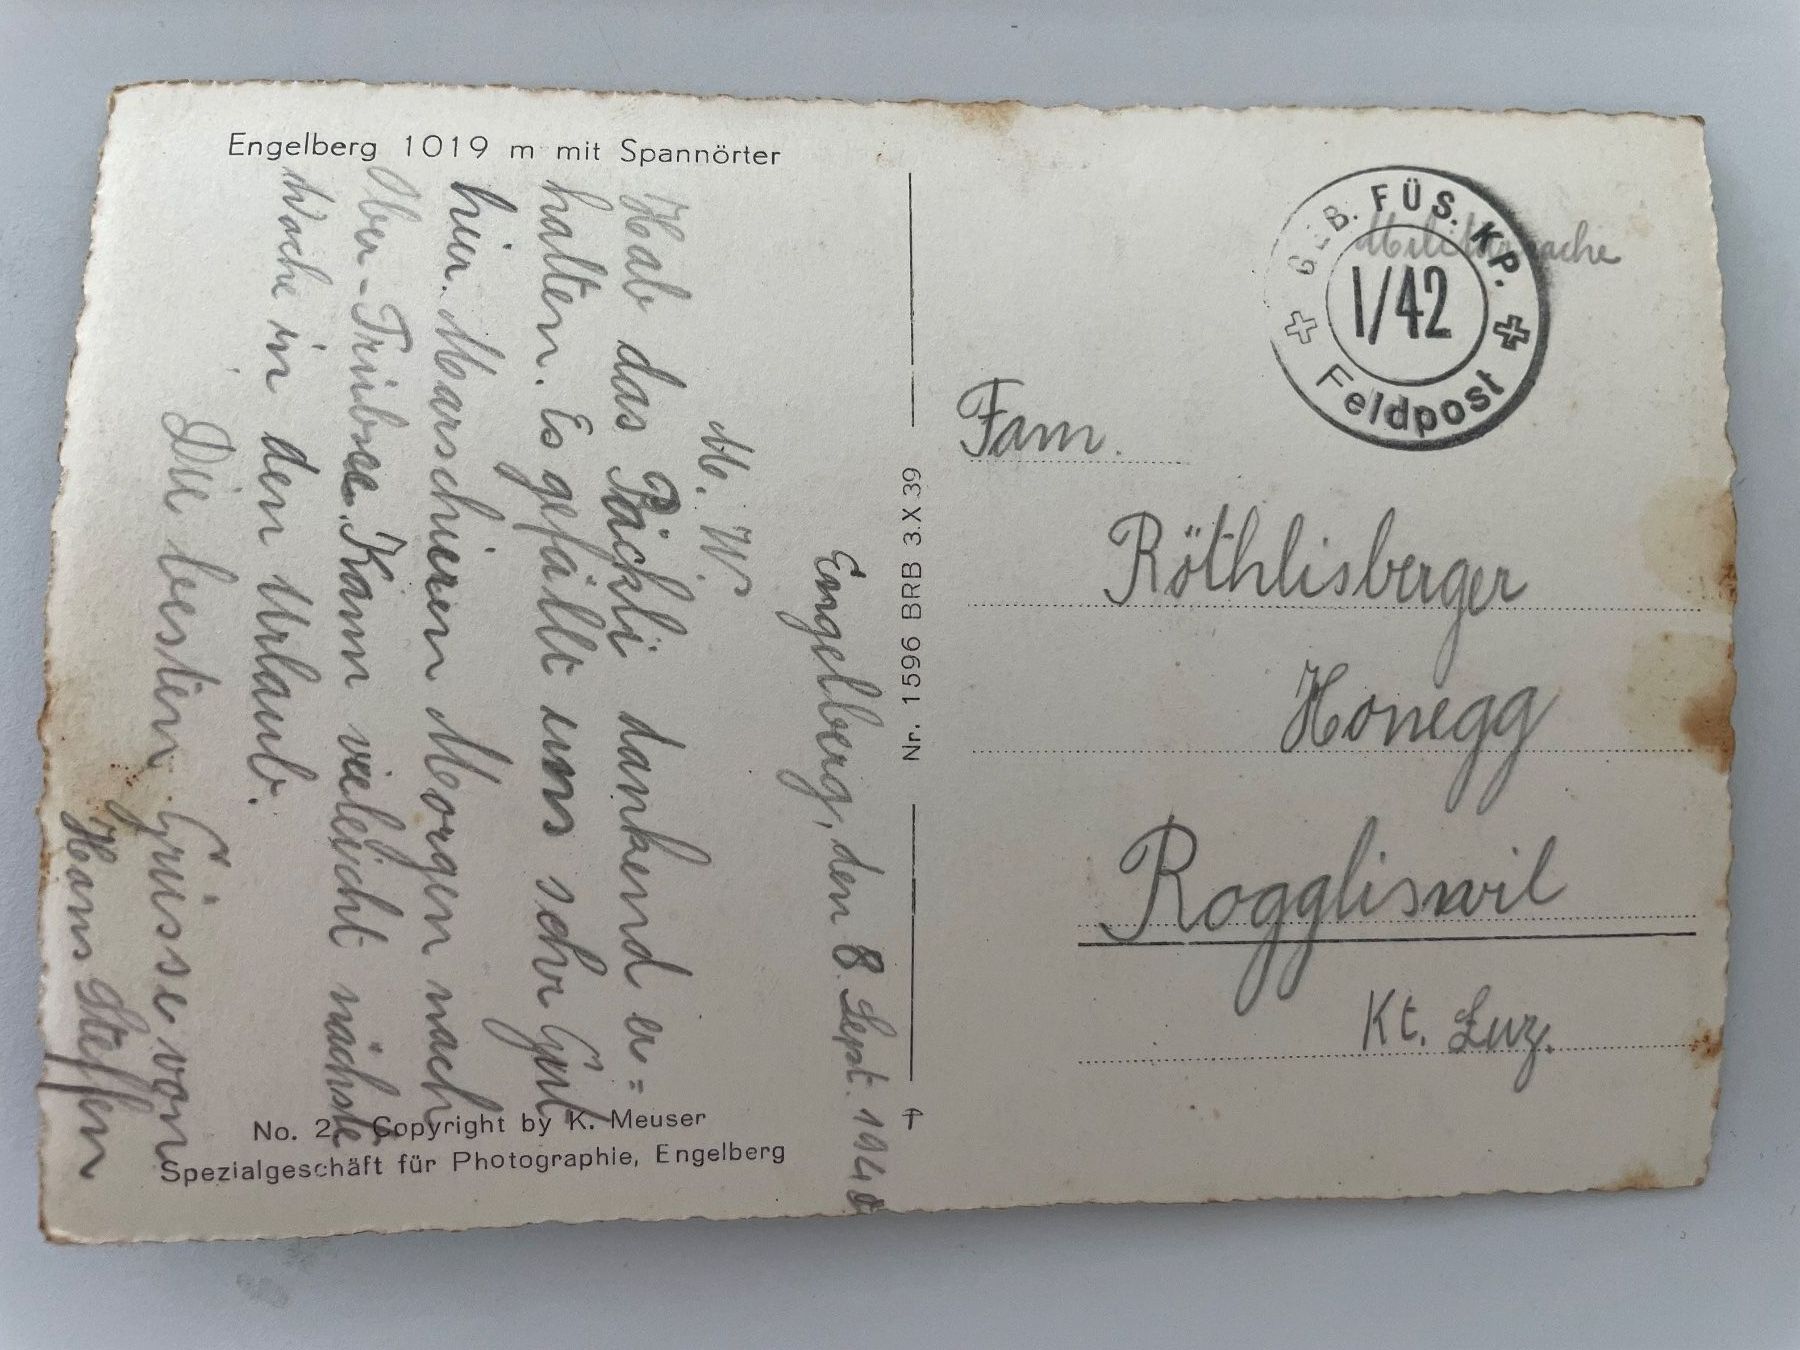 Engelberg 1019 m mit Spannörter
Engelberg, den 8. Sept. 1940
M. W.
Hab das Päckli dankend er=
halten. Es gefällt uns sehr Gut
hier. Marschieren Morgen nach
Ober-Trübsee. Kann vieleicht nächste
Woche in den Urlaub.
Die besten Grüsse von
Hans Steffen
No. 2 Copyright by K. Meuser
Spezialgeschäft für Photographie, Engelberg
Nr. 1596 BRB 3.X.39
Militärsache
GEB. FÜS. KP.
I/42
Feldpost
Fam.
Röthlisberger
Honegg
Roggliswil
Kt. Luz.